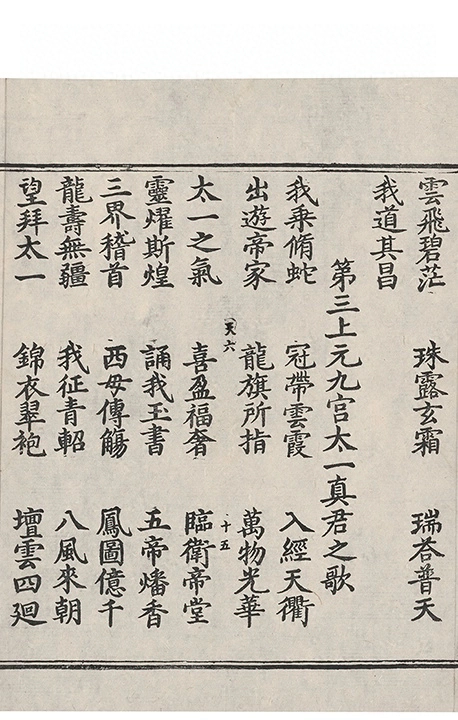 雲飛碧茫　珠露玄霜　瑞荅普天
我道其昌
第三上元九宫太一真君之歌
我乗脩蛇　冠帶雲霞　入經天衢
出遊帝家　龍旗所指　萬物光華
天六　十五
太一之氣　喜盈福奢　臨衛帝堂
靈燿斯煌　誦我玉書　五帝燔香
三界稽首　西母傳觴　鳳圖億千
龍壽無疆　我征青軺　八風來朝
望拜太一　錦衣翠袍　壇雲四廻